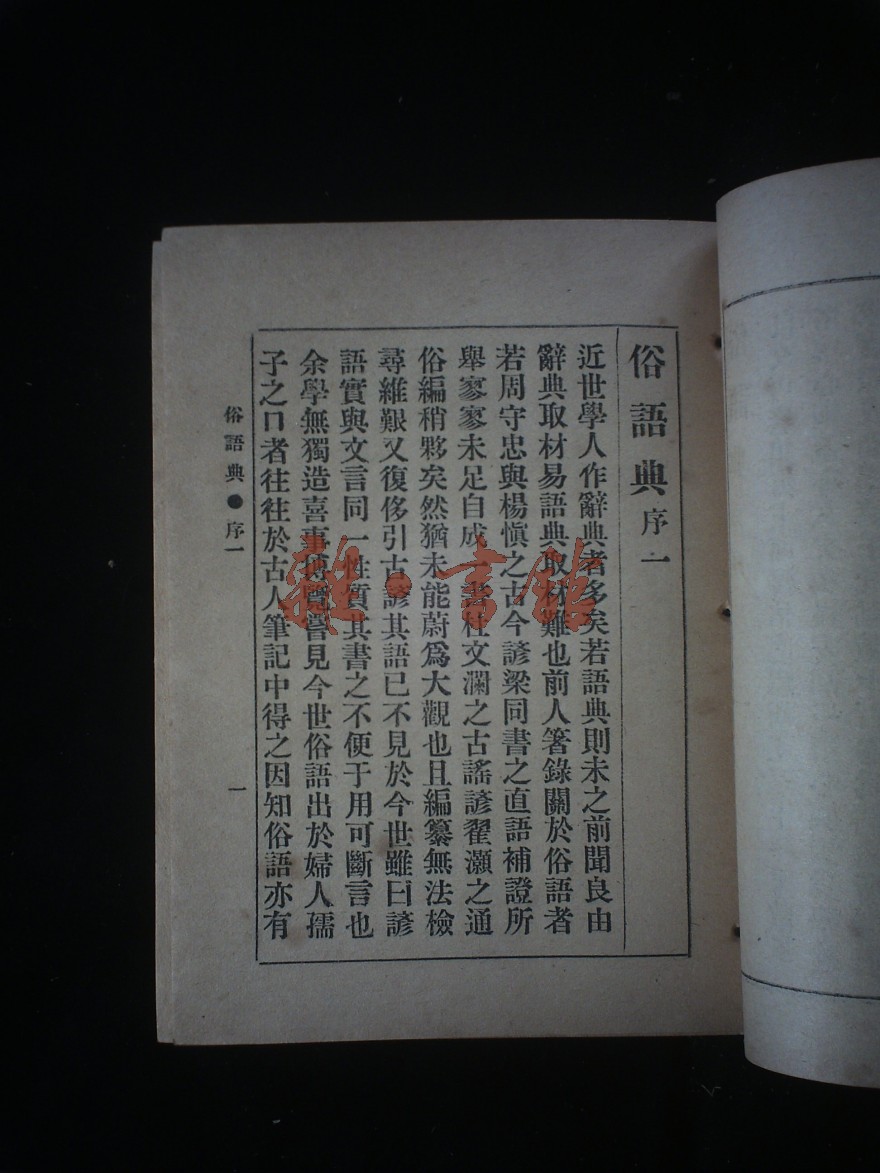 俗語典序一
近世學人作辭典者多矣若語典則未之前聞良由
辭典取材易語典取材難也前人箸錄關於俗語者
若周守忠與楊愼之古今諺梁同書之直語補證所
舉寥寥未足自成一書杜文瀾之古謠諺翟灝之通
俗編稍夥矣然猶未能蔚爲大觀也且編纂無法檢
尋維艱又復侈引古諺其語已不見於今世雖曰諺
語實與文言同一性質其書之不便于用可斷言也
余學無獨造喜事博覽嘗見今世俗語出於婦人孺
子之口者往往於古人筆記中得之因知俗語亦有
俗語典●序一
一
雜·書館